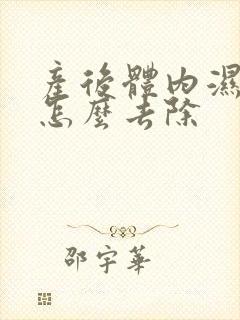 產後體內濕
怎麼去除
邵宇華